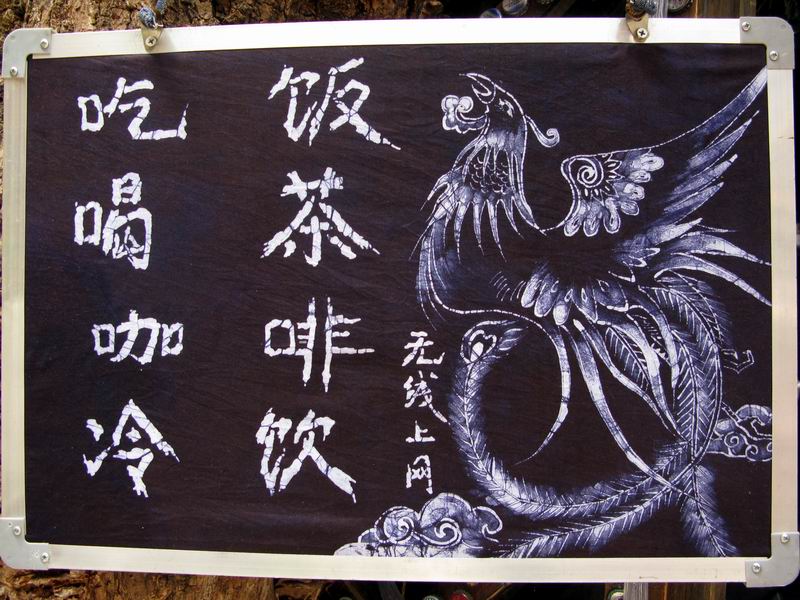 吃饭
喝茶
咖啡
冷饮
无线上网